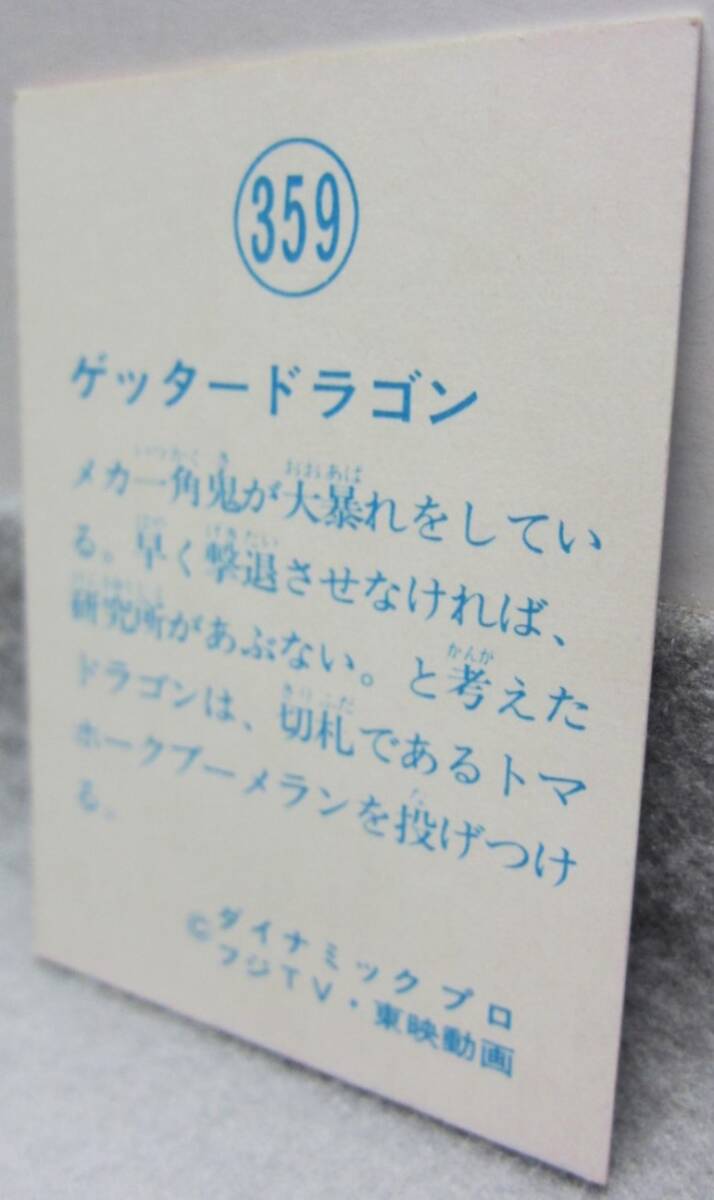 359
ゲッタードラゴン
メカ一角鬼が大暴れをしてい
る。早く撃退させなければ、
研究所があぶない。と考えた
ドラゴンは、切札であるトマ
ホークブーメランを投げつけ
る。
©ダイナミックプロ
フジTV・東映動画